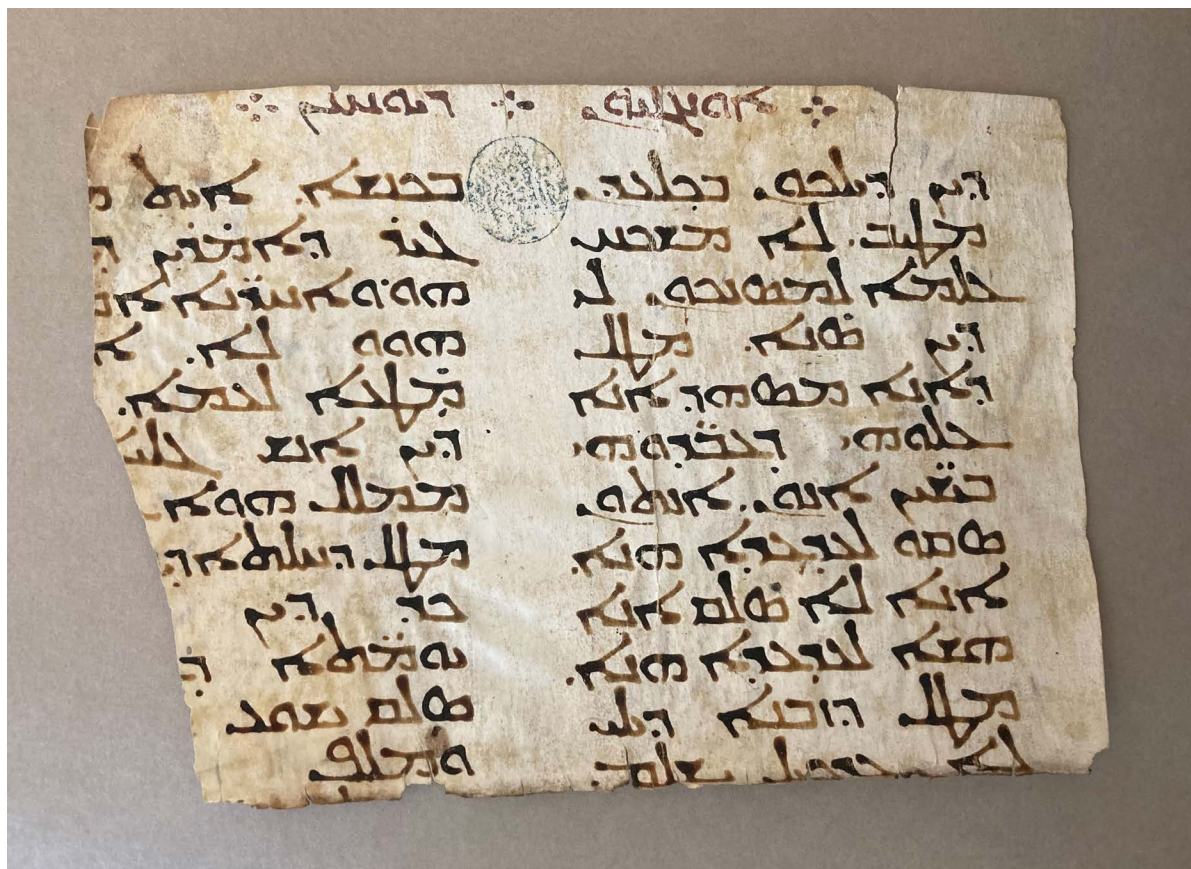 ܐܘܢܓܠܝܘܢ ܕܝܘܚܢܢ
ܕܝܢ ܕܝܠܟܘܢ. ܒܟܠܥܕܢ.
ܡܛܝܒ. ܠܐ ܡܫܟܚ
ܥܠܡܐ ܠܡܣܢܟܘܢ. ܠܝ
ܕܝܢ ܣܢܐ. ܡܛܠ
ܕܐܢܐ ܡܣܗܕ ܐܢܐ
ܥܠܘܗܝ ܕܥܒܕܘܗܝ
ܒܝܫܝܢ ܐܢܘܢ. ܐܢܬܘܢ
ܣܩܘ ܠܥܕܥܕܐ ܗܢܐ.
ܐܢܐ ܠܐ ܣܠܩ ܐܢܐ
ܗܫܐ ܠܥܕܥܕܐ ܗܢܐ.
ܡܛܠ ܕܙܒܢܐ ܕܝܠܝ
ܠܐ ܥܕܟܝܠ ܫܠܡ
ܒܟܢܫܐ. ܐܝܬ
ܓܝܪ ܕܐܡܪܝܢ ܕ
ܗܘ ܘܐܚܪܢܐ ܐܡ
ܗܘܘ ܠܐ. ܐ
ܡܛܥܐ ܠܥܡܐ.
ܕܝܢ ܐܢܫ ܓܠܝ
ܡܡܠܠ ܗܘܐ
ܡܛܠ ܕܚܠܬܐ ܕ
ܟܕ ܕܝܢ
ܝܘܡܬܐ ܕ
ܣܠܩ ܝܫܘܥ
ܘܡܠܦ